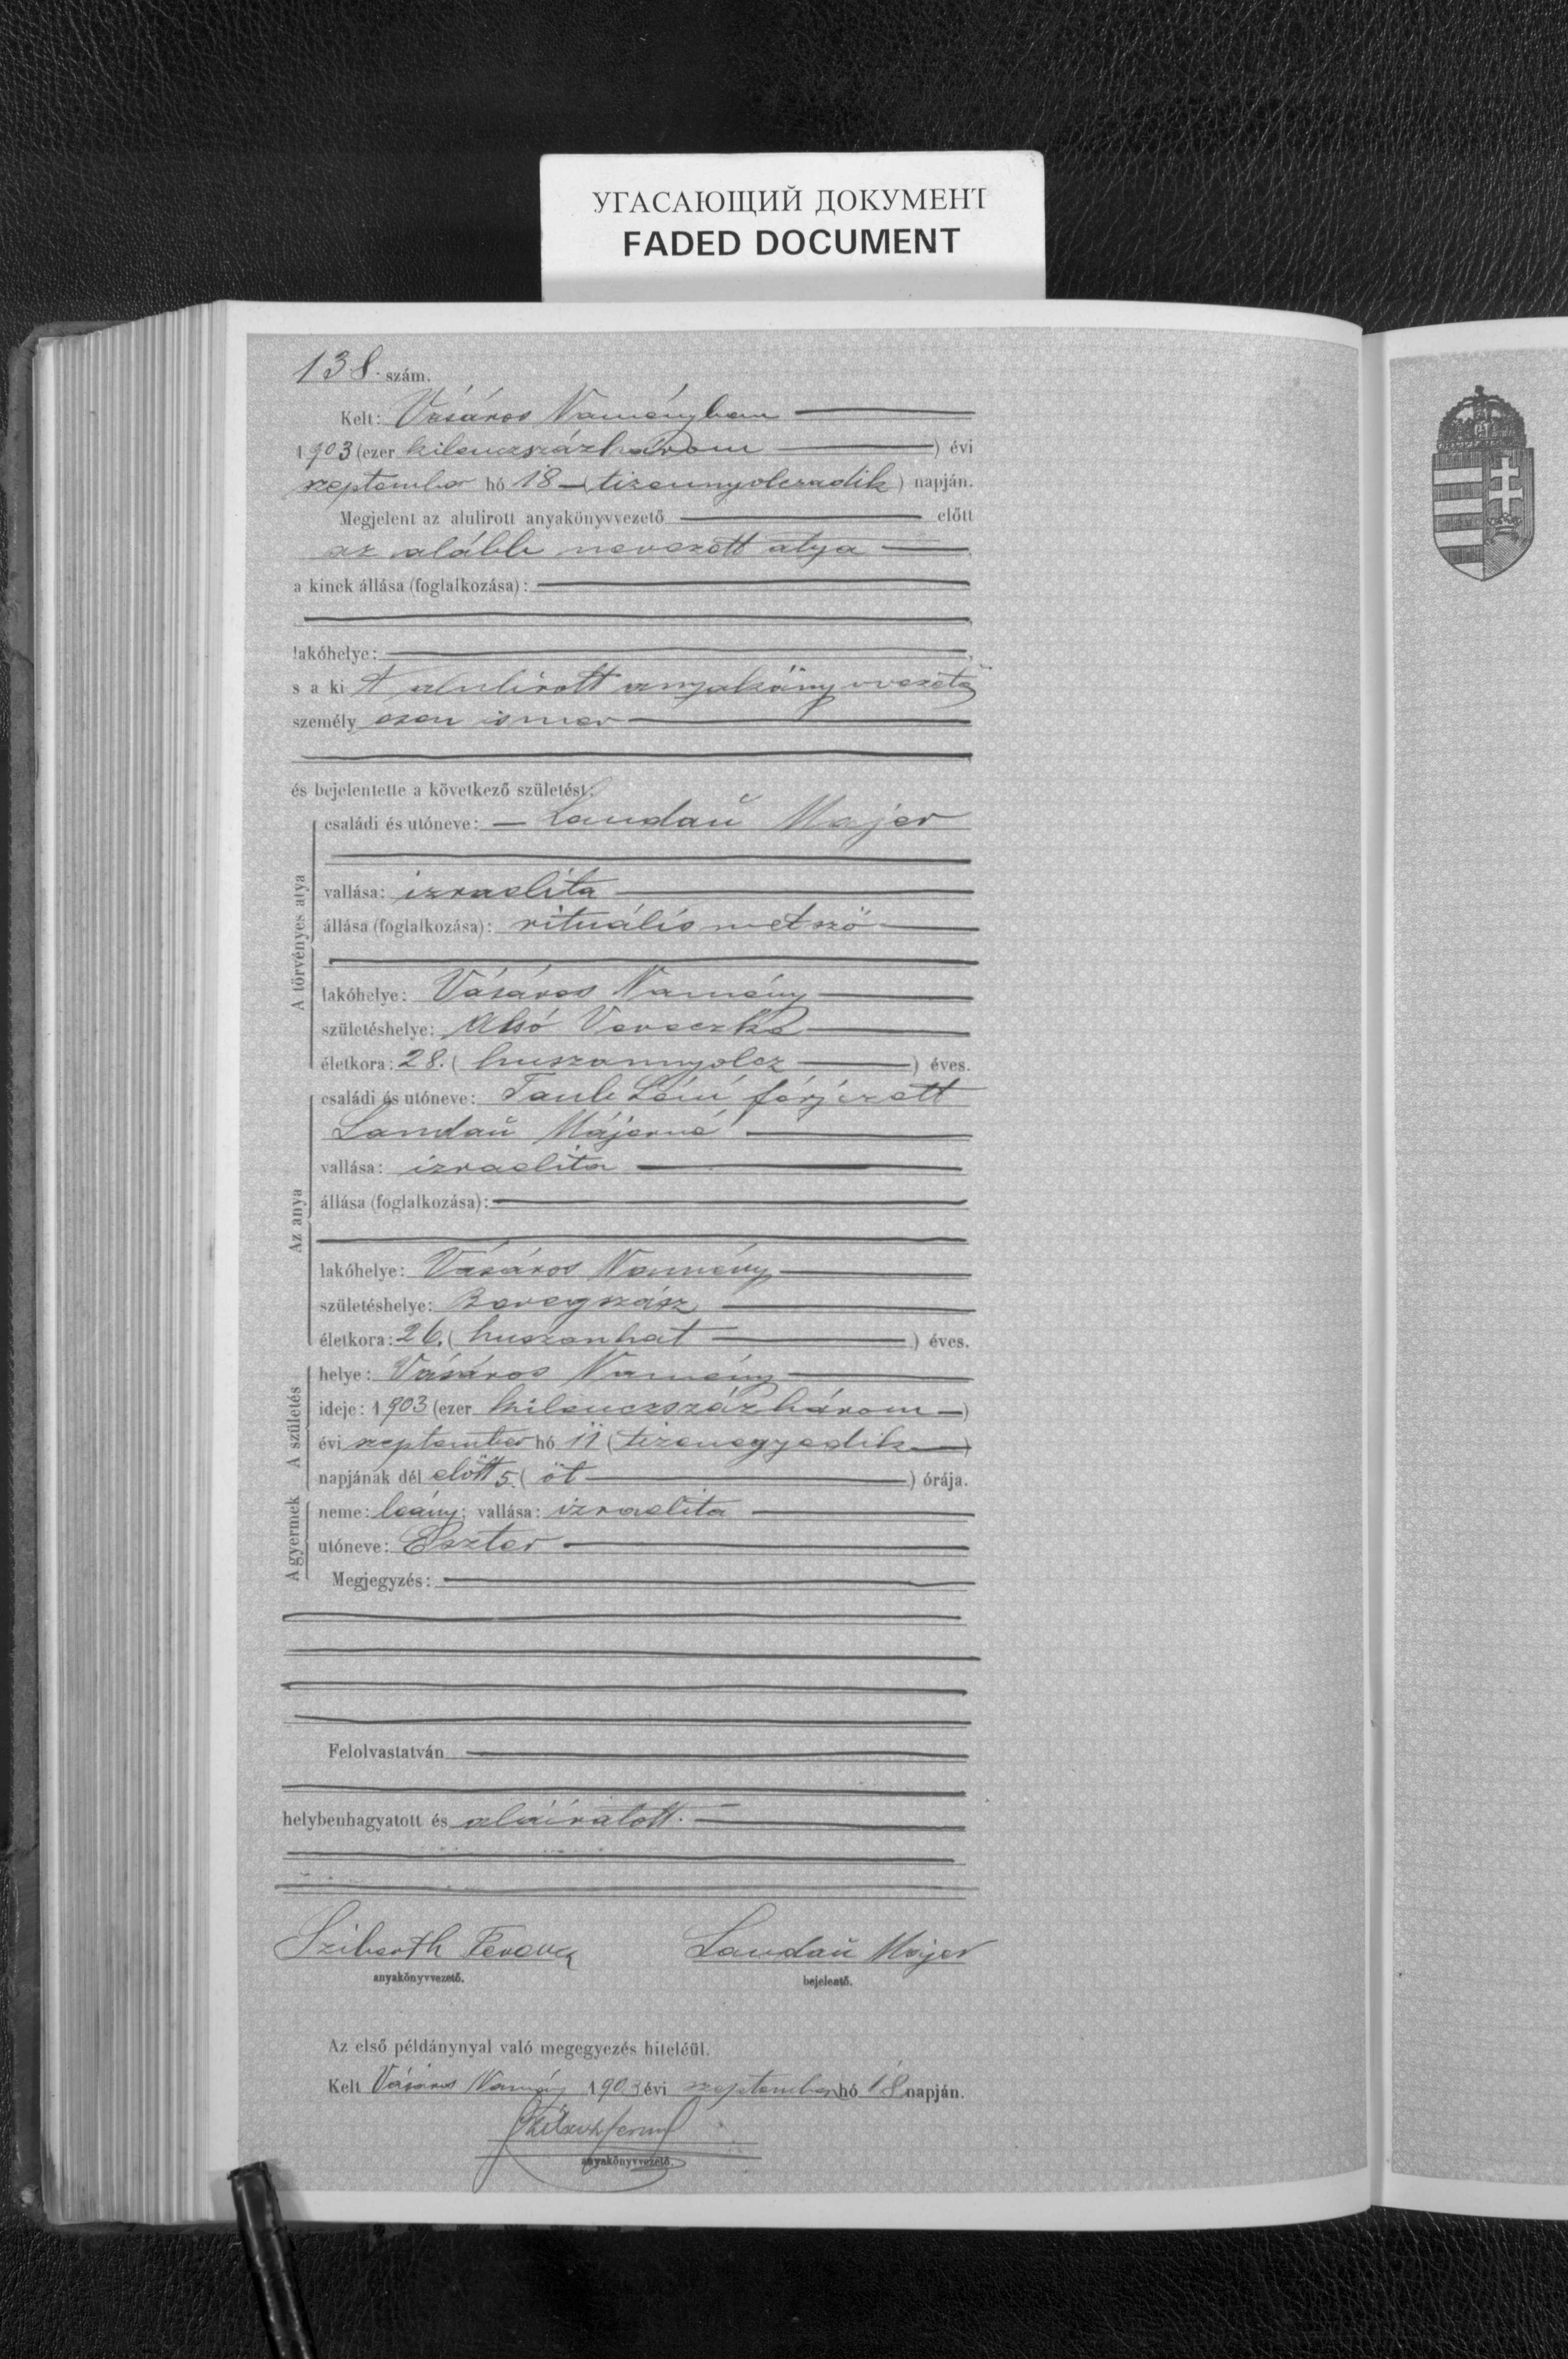 УГАСАЮЩИЙ ДОКУМЕНТ
FADED DOCUMENT
138. szám.
Kelt: Vásáros Naményban
1903 (ezer kilenczszázhárom) évi
szeptember hó 18 (tizennyolczadik) napján.
Megjelent az alulirott anyakönyvvezető előtt
az alább nevezett atya
a kinek állása (foglalkozása):
lakóhelye:
s a kit alulirott anyakönyvvezető
személyesen ismer
és bejelentette a következő születést:
A törvényes atya
családi és utóneve: Landaŭ Majer
vallása: izraelita
állása (foglalkozása): rituális metsző
lakóhelye: Vásáros Namény
születéshelye: Alsó Vereczke
életkora: 28. (huszonnyolcz) éves.
Az anya
családi és utóneve: Taub férjezett
Landaŭ Májerné
vallása: izraelita
állása (foglalkozása):
lakóhelye: Vásáros Namény
születéshelye: Beregszász
életkora: 26. (huszonhat) éves.
A születés
helye: Vásáros Namény
ideje: 1903 (ezer kilenczszázhárom)
évi szeptember hó 11 (tizenegyedik)
napjának dél előtt 5. (öt) órája.
A gyermek
neme: leány; vallása: izraelita
utóneve: Eszter
Megjegyzés:
Felolvastatván
helybenhagyatott és aláiratott.
Ferencz Landaŭ Májer
anyakönyvvezető. bejelentő.
Az első példánynyal való megegyezés hiteléül.
Kelt Vásáros Namény 1903 évi szeptember hó 18 napján.
anyakönyvvezető.